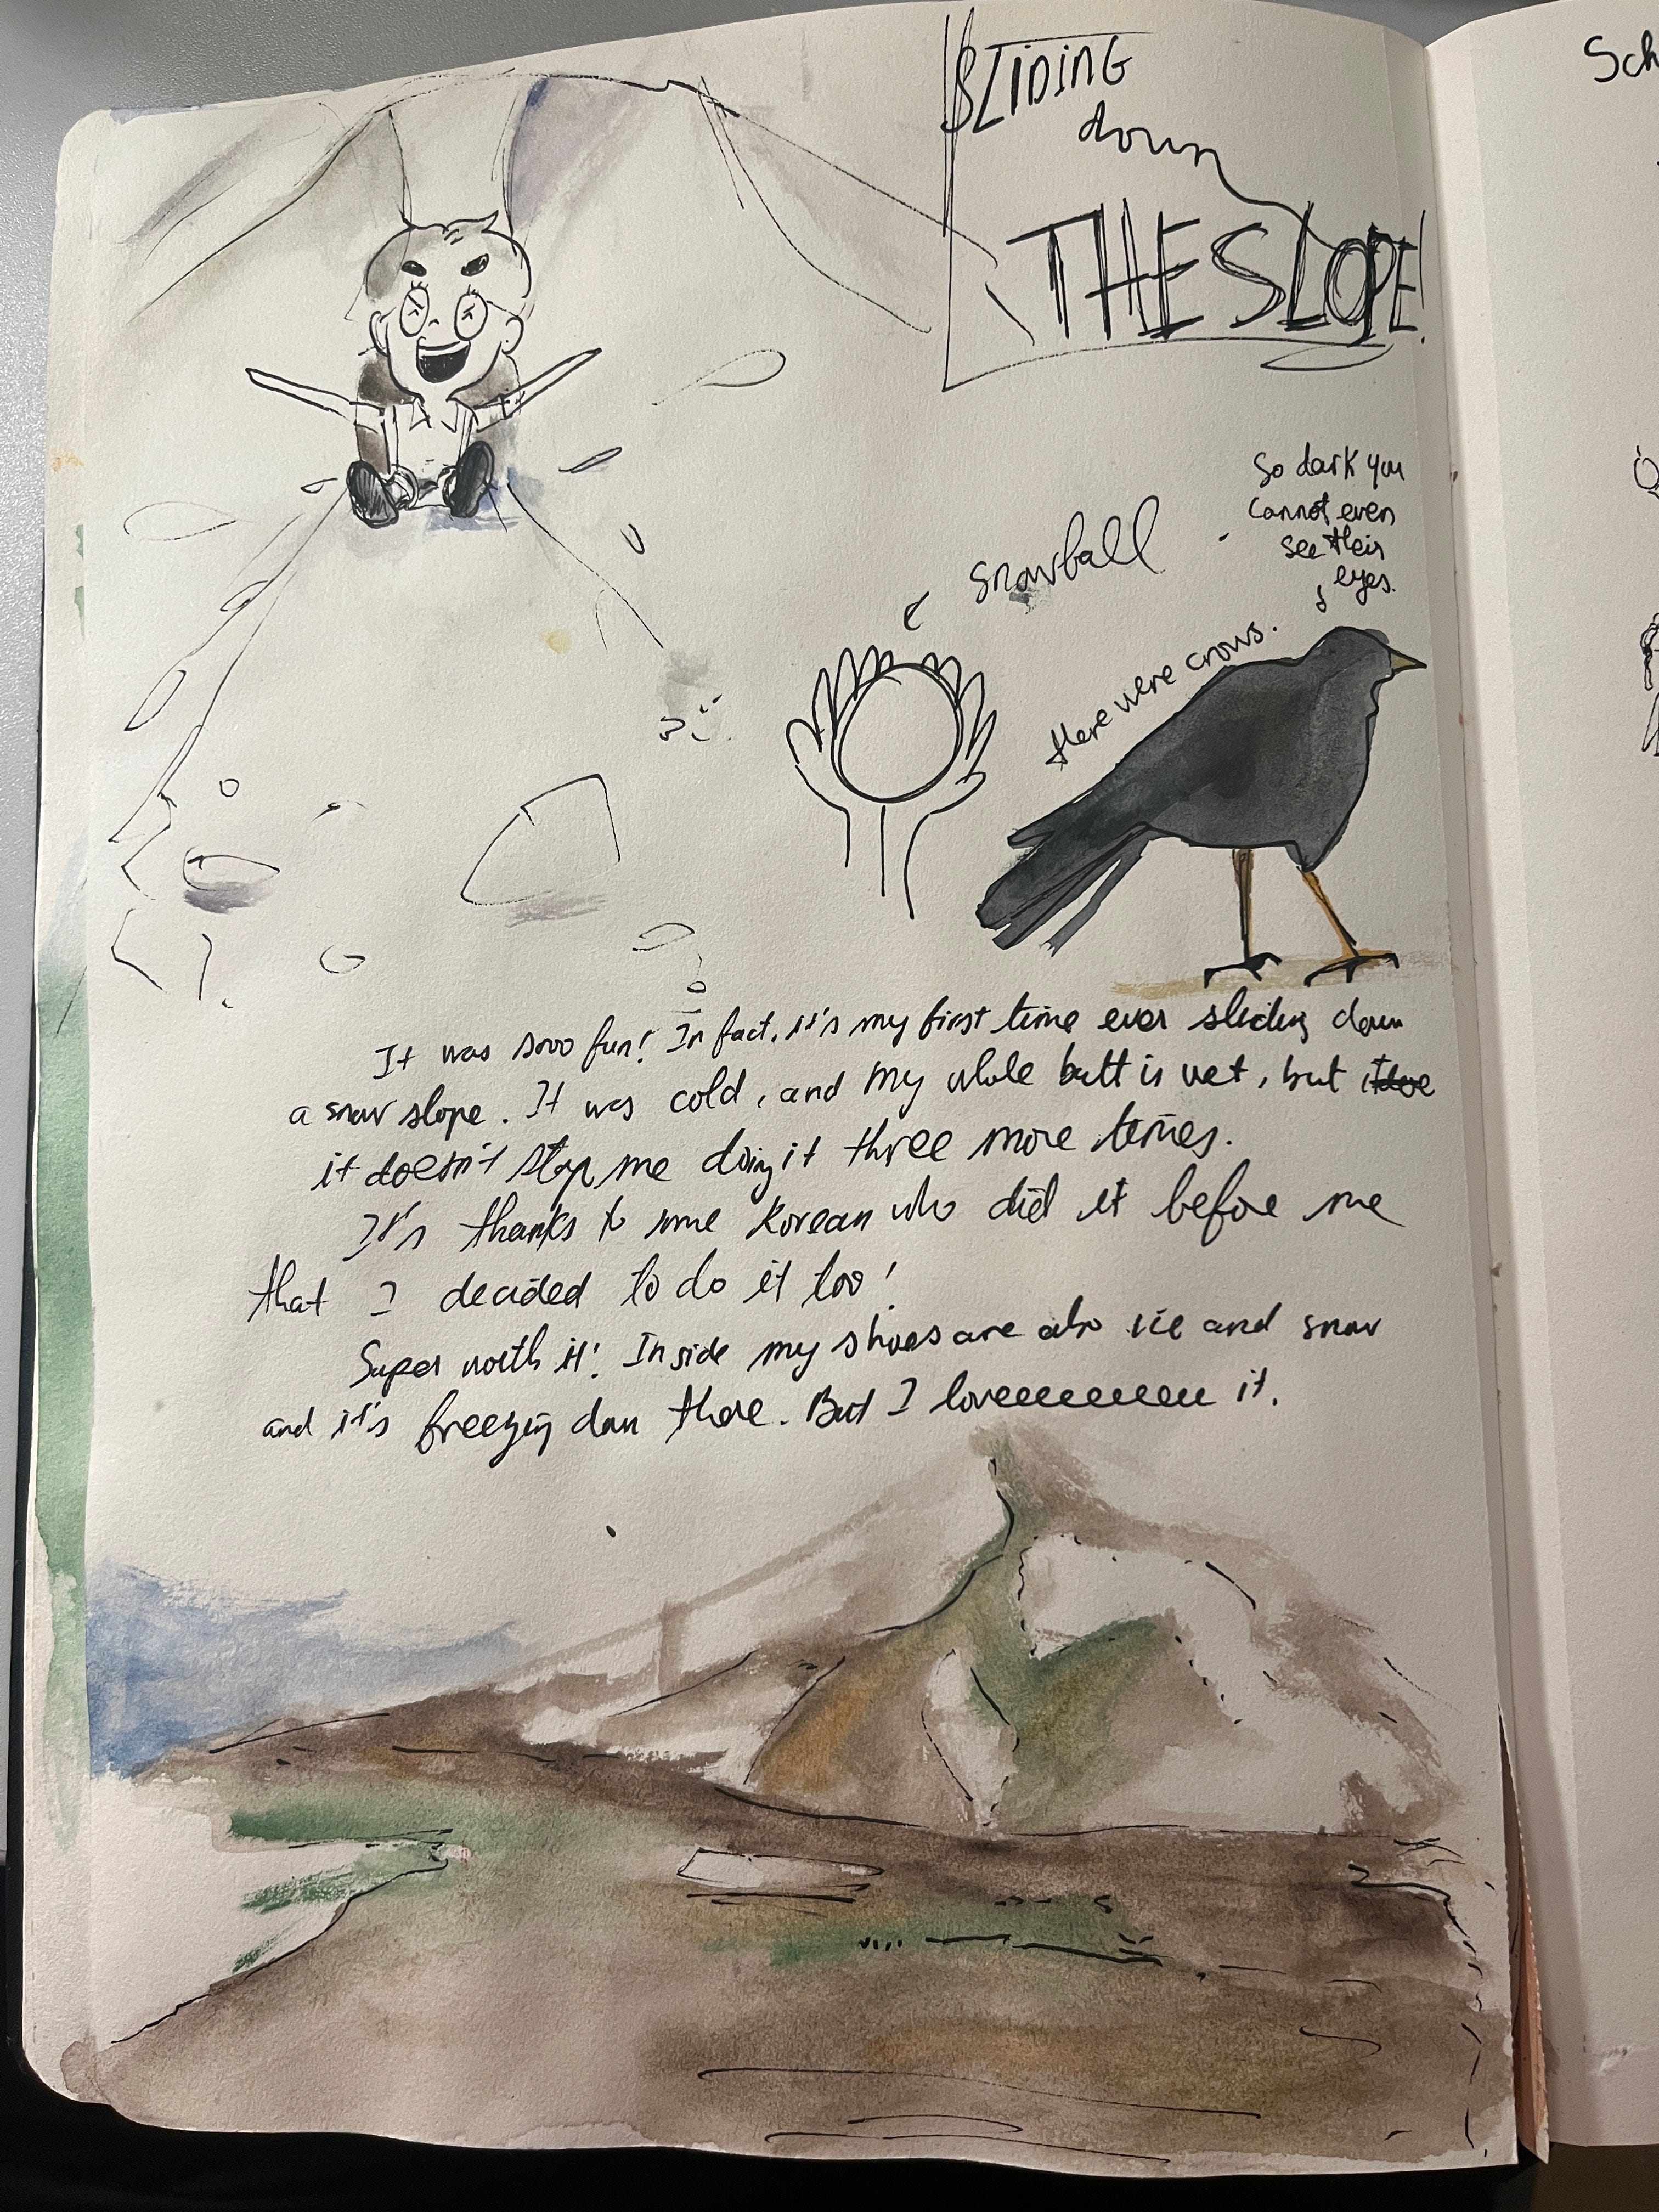 SLIDING
down
THE SLOPE!
Sch
So dark you
cannot even
see their
eyes.
snowball
there were crows.
It was sooo fun! In fact, it's my first time ever sliding down
a snow slope. It was cold, and my whole butt is wet, but
it doesn't stop me doing it three more times.
It's thanks to some Korean who did it before me
that I decided to do it too!
Super worth it! Inside my shoes are also ice and snow
and it's freezing down there. But I loveeeeeeeeee it.